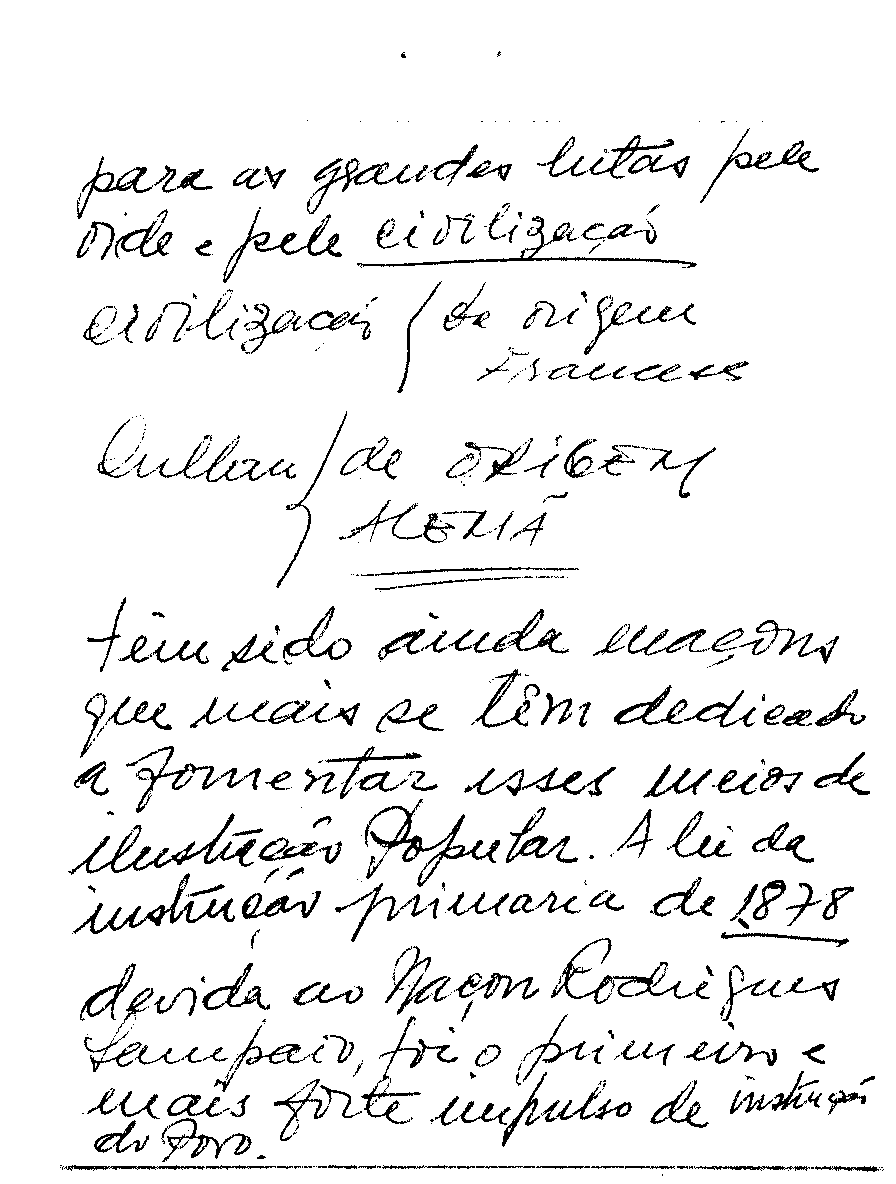 para as grandes lutas pela
vida e pela civilização
civilização { de origem
Francesa
{ de ORIGEM
ALEMÃ
têm sido ainda maçons
que mais se têm dedicado
a fomentar esses meios de
ilustração Popular. A lei da
instrução primaria de 1878
devida ao Maçon Rodrigues
Sampaio, foi o primeiro e
mais forte impulso de instrução
do Povo.